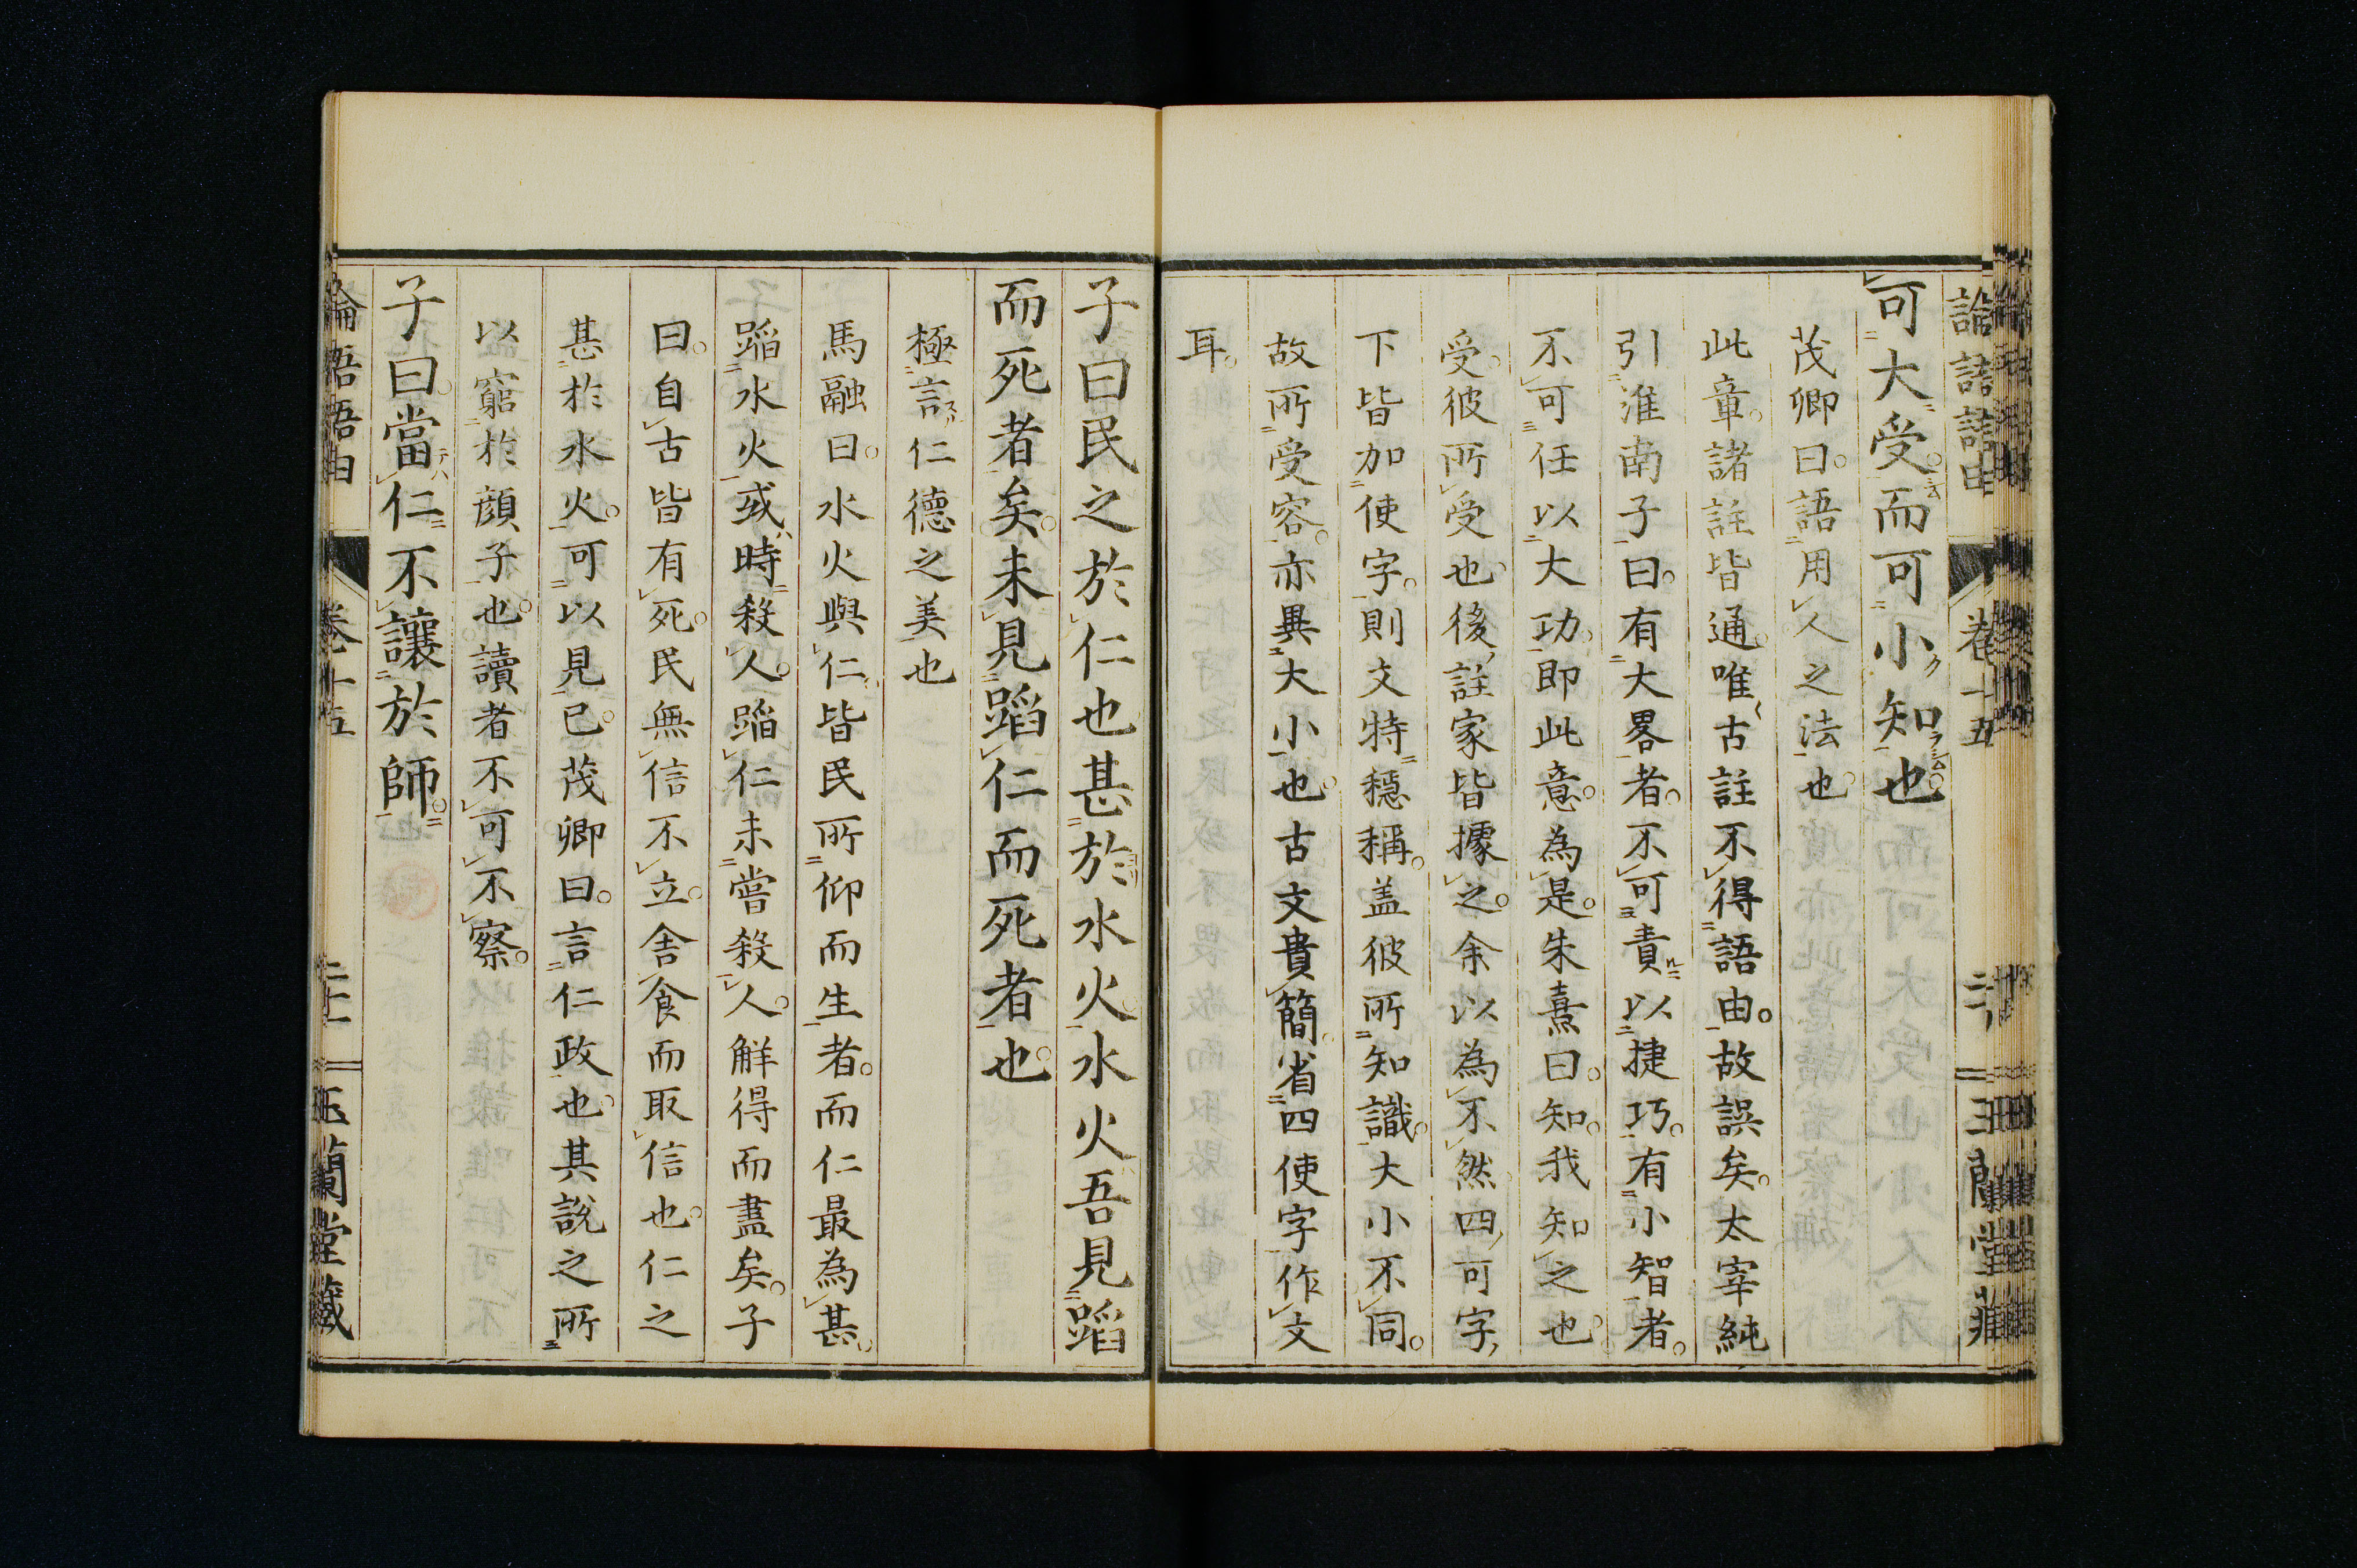 可大受而可小知也
茂卿曰語用人之法也
此章諸註皆通唯古註不得語由故誤矣太宰純
引淮南子曰有大畧者不可責以捷巧有小智者
不可任以大功即此意為是朱熹曰知我知之也
受彼所受也後註家皆據之余以為不然四可字
下皆加使字則文特穩稱盖彼所知識大小不同
故所受容亦異大小也古文貴簡省四使字作文
耳
子曰民之於仁也甚於水火水火吾見蹈
而死者矣未見蹈仁而死者也
極言仁德之美也
馬融曰水火與仁皆民所仰而生者而仁最為甚
蹈水火或時殺人蹈仁未嘗殺人解得而盡矣子
曰自古皆有死民無信不立舍食而取信也仁之
甚於水火可以見已茂卿曰言仁政也其說之所
以窮於顔子也讀者不可不察
子曰當仁不讓於師
論語語由 卷十五 二十一 玉蘭堂藏